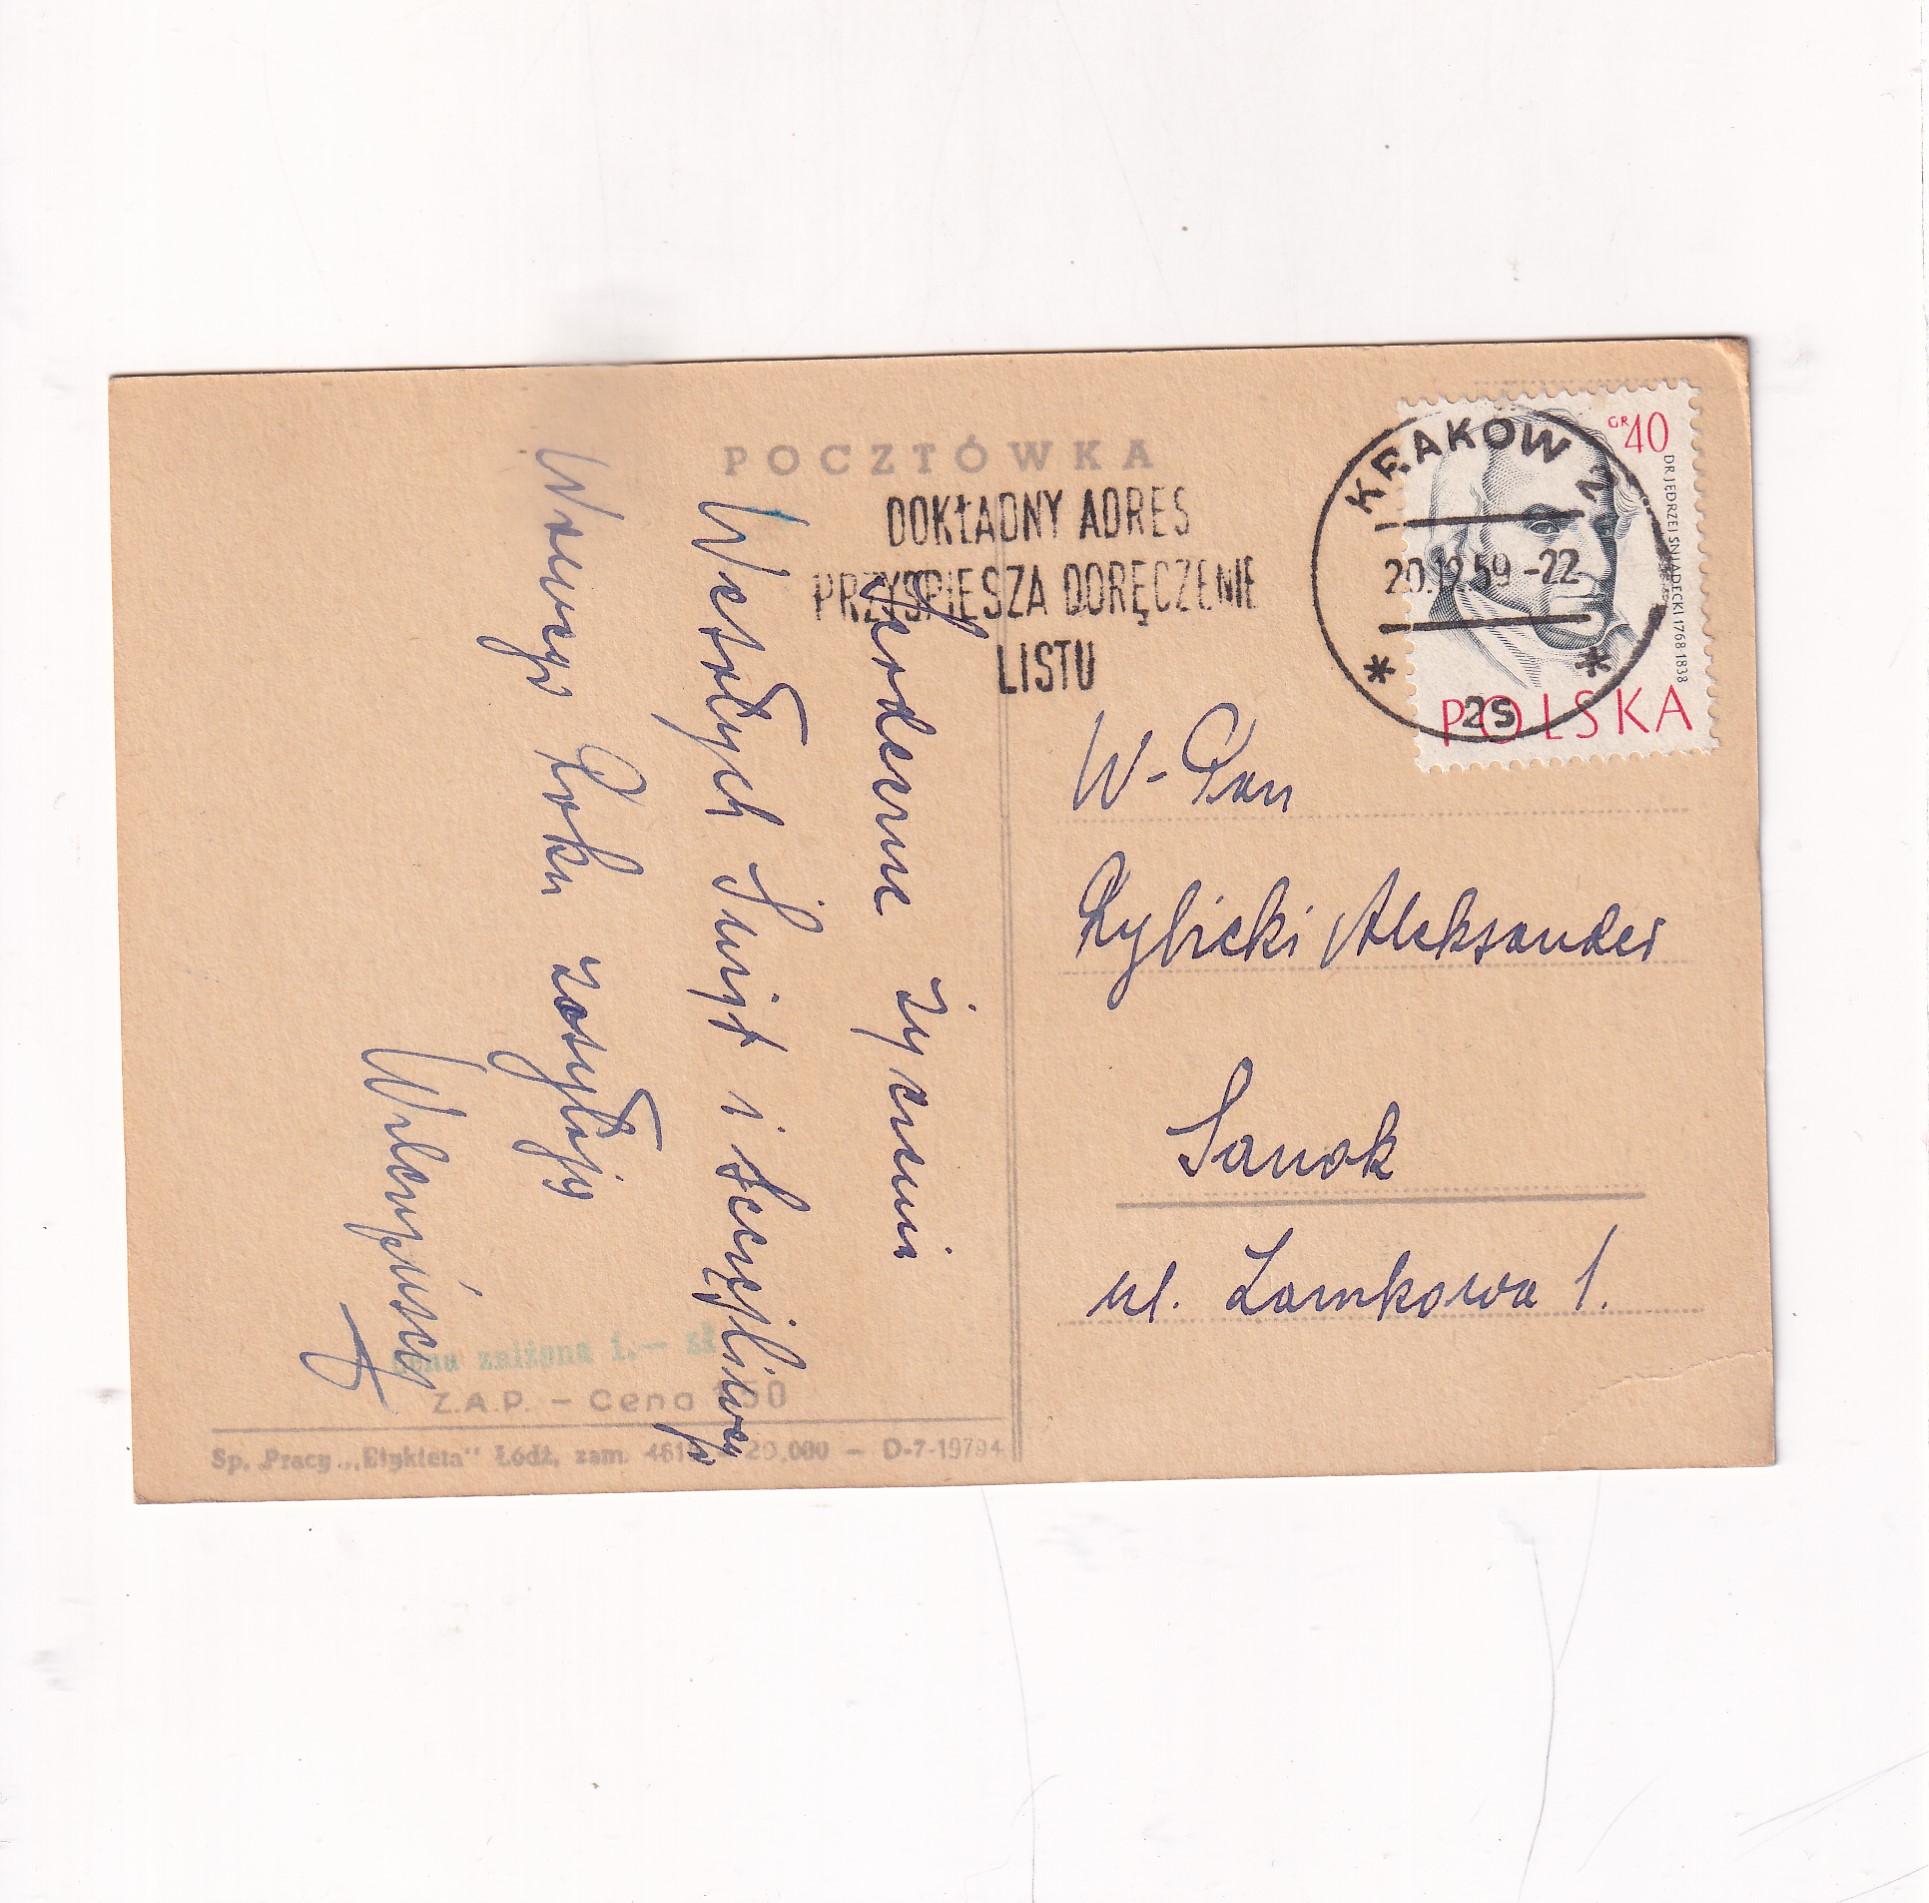 POCZTÓWKA
DOKŁADNY ADRES
PRZYSPIESZA DORĘCZENIE
LISTU
KRAKÓW 2
20.12.59-22
2S
GR 40
DR JĘDRZEJ ŚNIADECKI 1768 1838
POLSKA
Serdeczne życzenia
Wesołych Świąt i szczęśliwego
Nowego Roku zasyłają
W-Pan
Rybicki Aleksander
Sanok
ul. Zamkowa 1.
Cena zniżona 1.— zł
Z.A.P. – Cena 50
Sp. Pracy „Etykieta" Łódź, zam. 20.000 – D-7-19794